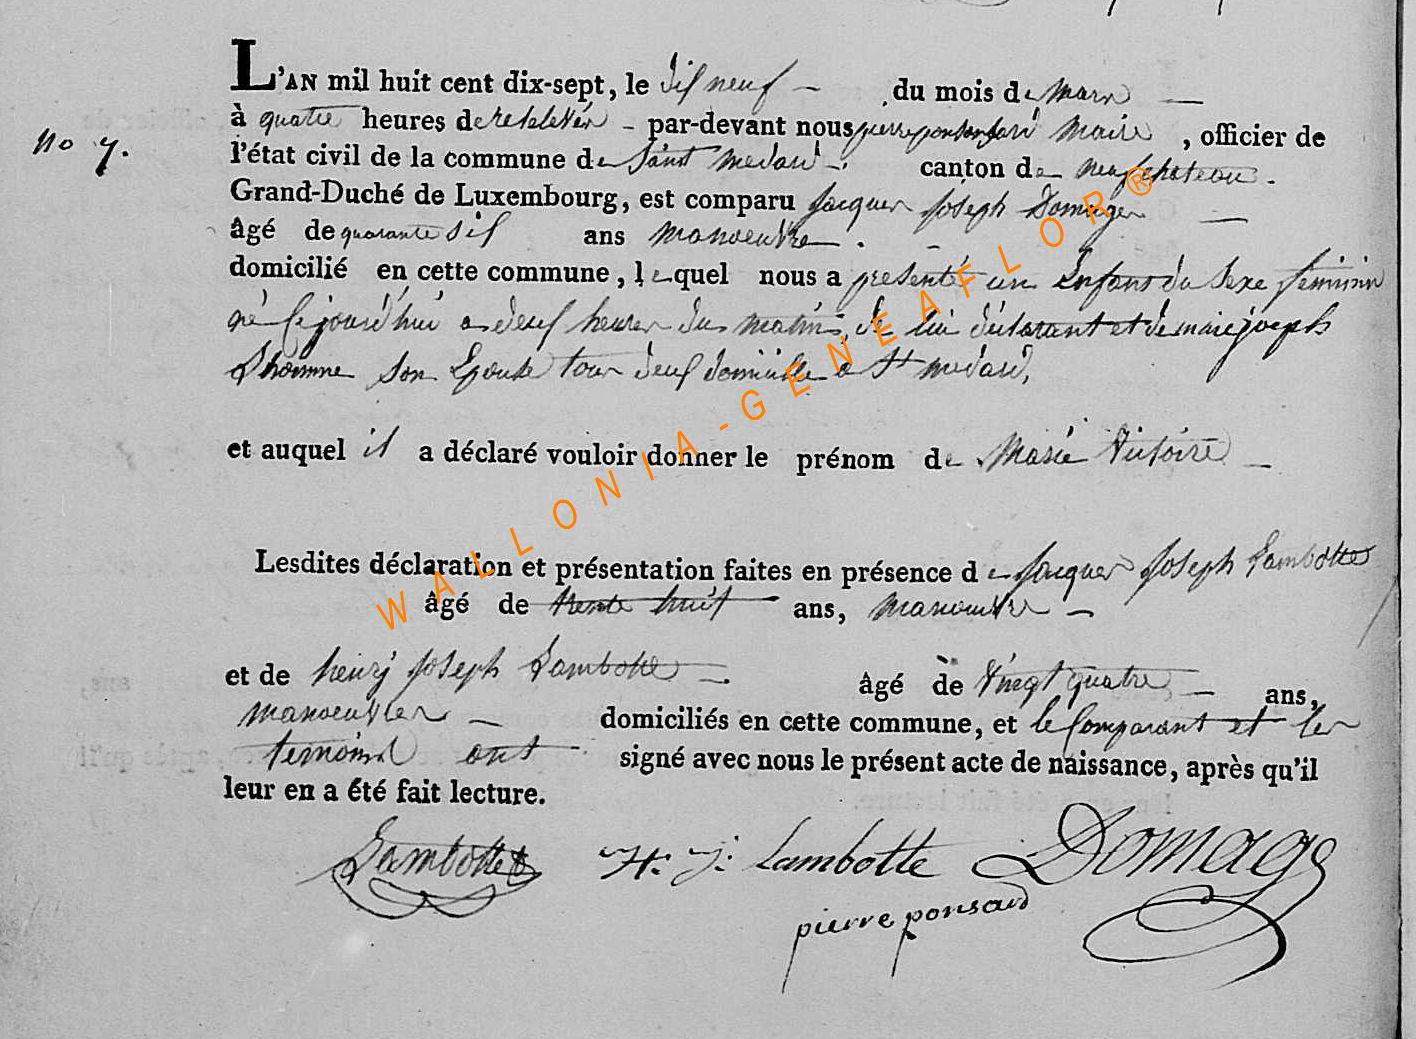 L'AN mil huit cent dix-sept, le dis neuf - du mois de mars —
à quatre heures de relevér - par-devant nous pierre ponsard Maire , officier de
No 7.
l'état civil de la commune de Saint medard - canton de neufchateau .
Grand-Duché de Luxembourg, est comparu Jacques Joseph Domage —
âgé de quarante sis ans manoeuvre . -
domicilié en cette commune, lequel nous a presenté un Enfant du Sexe feminin
né cejourd'hui a deuf heures du matin, de lui déclarant et de marie joseph
Lhomme son Epouse tous deuf domicille a St medard,
et auquel il a déclaré vouloir donner le prénom de Marie Victoire —
Lesdites déclaration et présentation faites en présence de Jacques Joseph Lambotte
âgé de trente huit ans, manoeuvre —
et de henry Joseph Lambotte — âgé de vingt quatre — ans,
manoeuvre — domiciliés en cette commune, et le Comparant et les
temoins ont signé avec nous le présent acte de naissance, après qu'il
leur en a été fait lecture.
Lambotte H. J. Lambotte Domage
pierre ponsard
WALLONIA-GENEAFLOR®